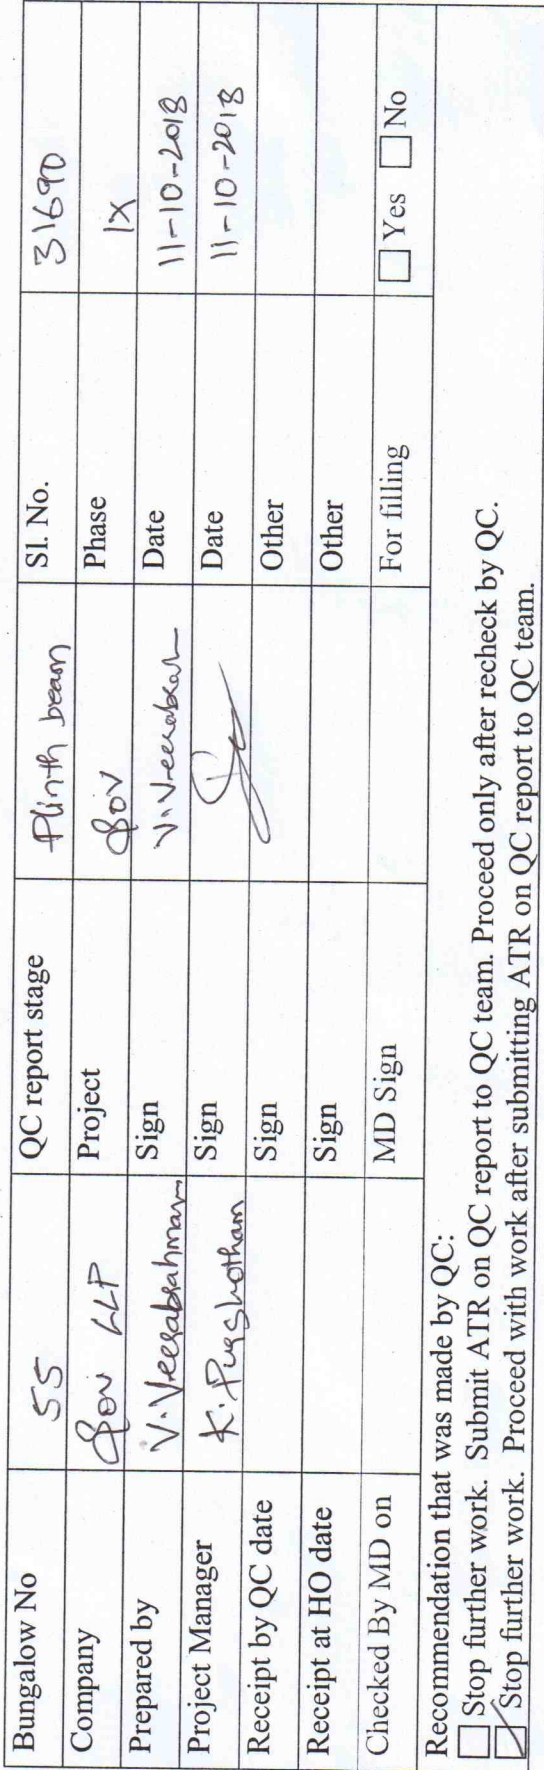 Bungalow No 55 QC report stage Plinth beam Sl. No. 31690
Company SOV LLP Project SOV Phase IX
Prepared by V. Veerabrahmam Sign Date 11-10-2018
Project Manager K. Purshotham Sign Date 11-10-2018
Receipt by QC date Sign Other
Receipt at HO date Sign Other
Checked By MD on MD Sign For filling ☐ Yes ☐ No
Recommendation that was made by QC:
☐ Stop further work. Submit ATR on QC report to QC team. Proceed only after recheck by QC.
☑ Stop further work. Proceed with work after submitting ATR on QC report to QC team.